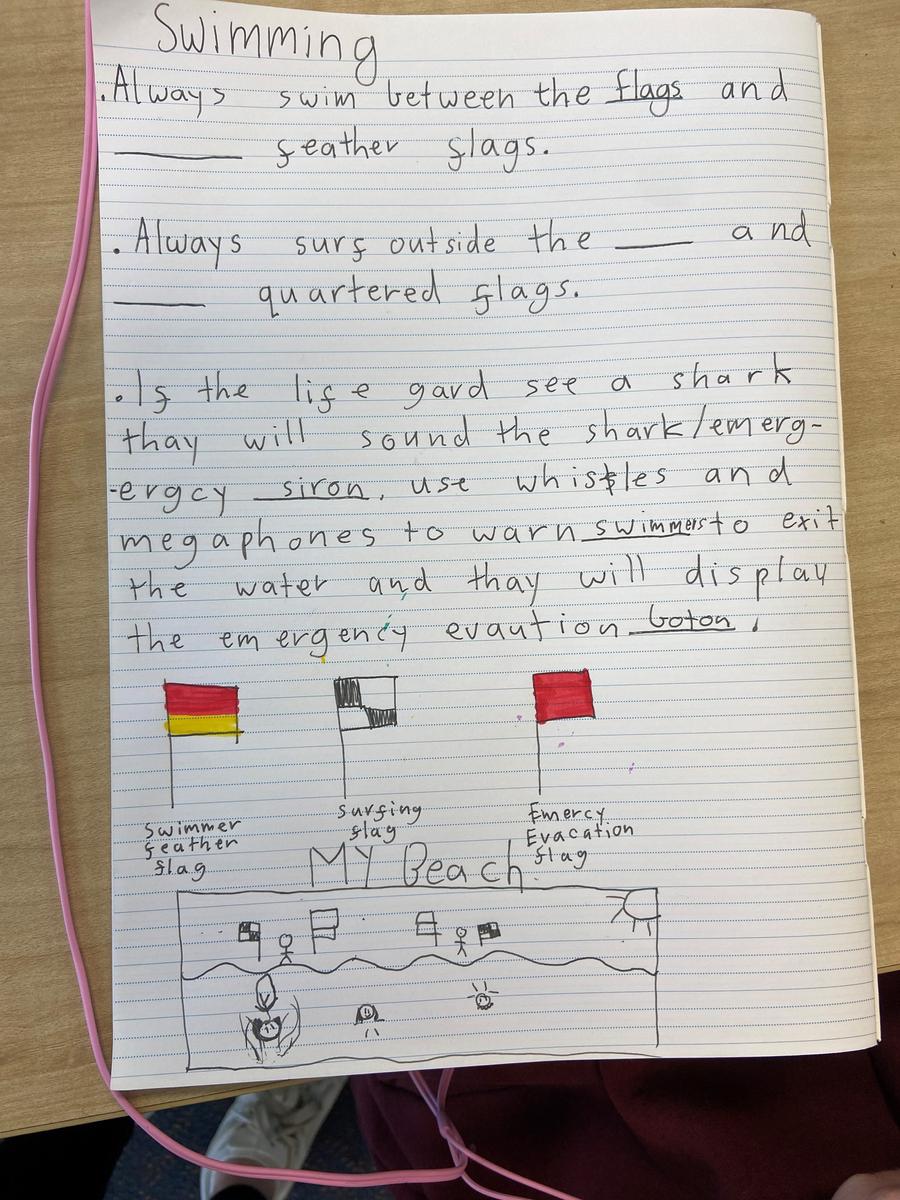 Swimming
. Always swim between the flags and
______ feather flags.
. Always surf outside the ____ and
____ quartered flags.
. If the life gard see a shark
thay will sound the shark/emerg-
-ergcy siron, use whistles and
megaphones to warn swimmers to exit
the water and thay will display
the emergency evaution boton.
Swimmer
feather
flag
Surfing
flag
Emercy
Evacation
flag
MY Beach